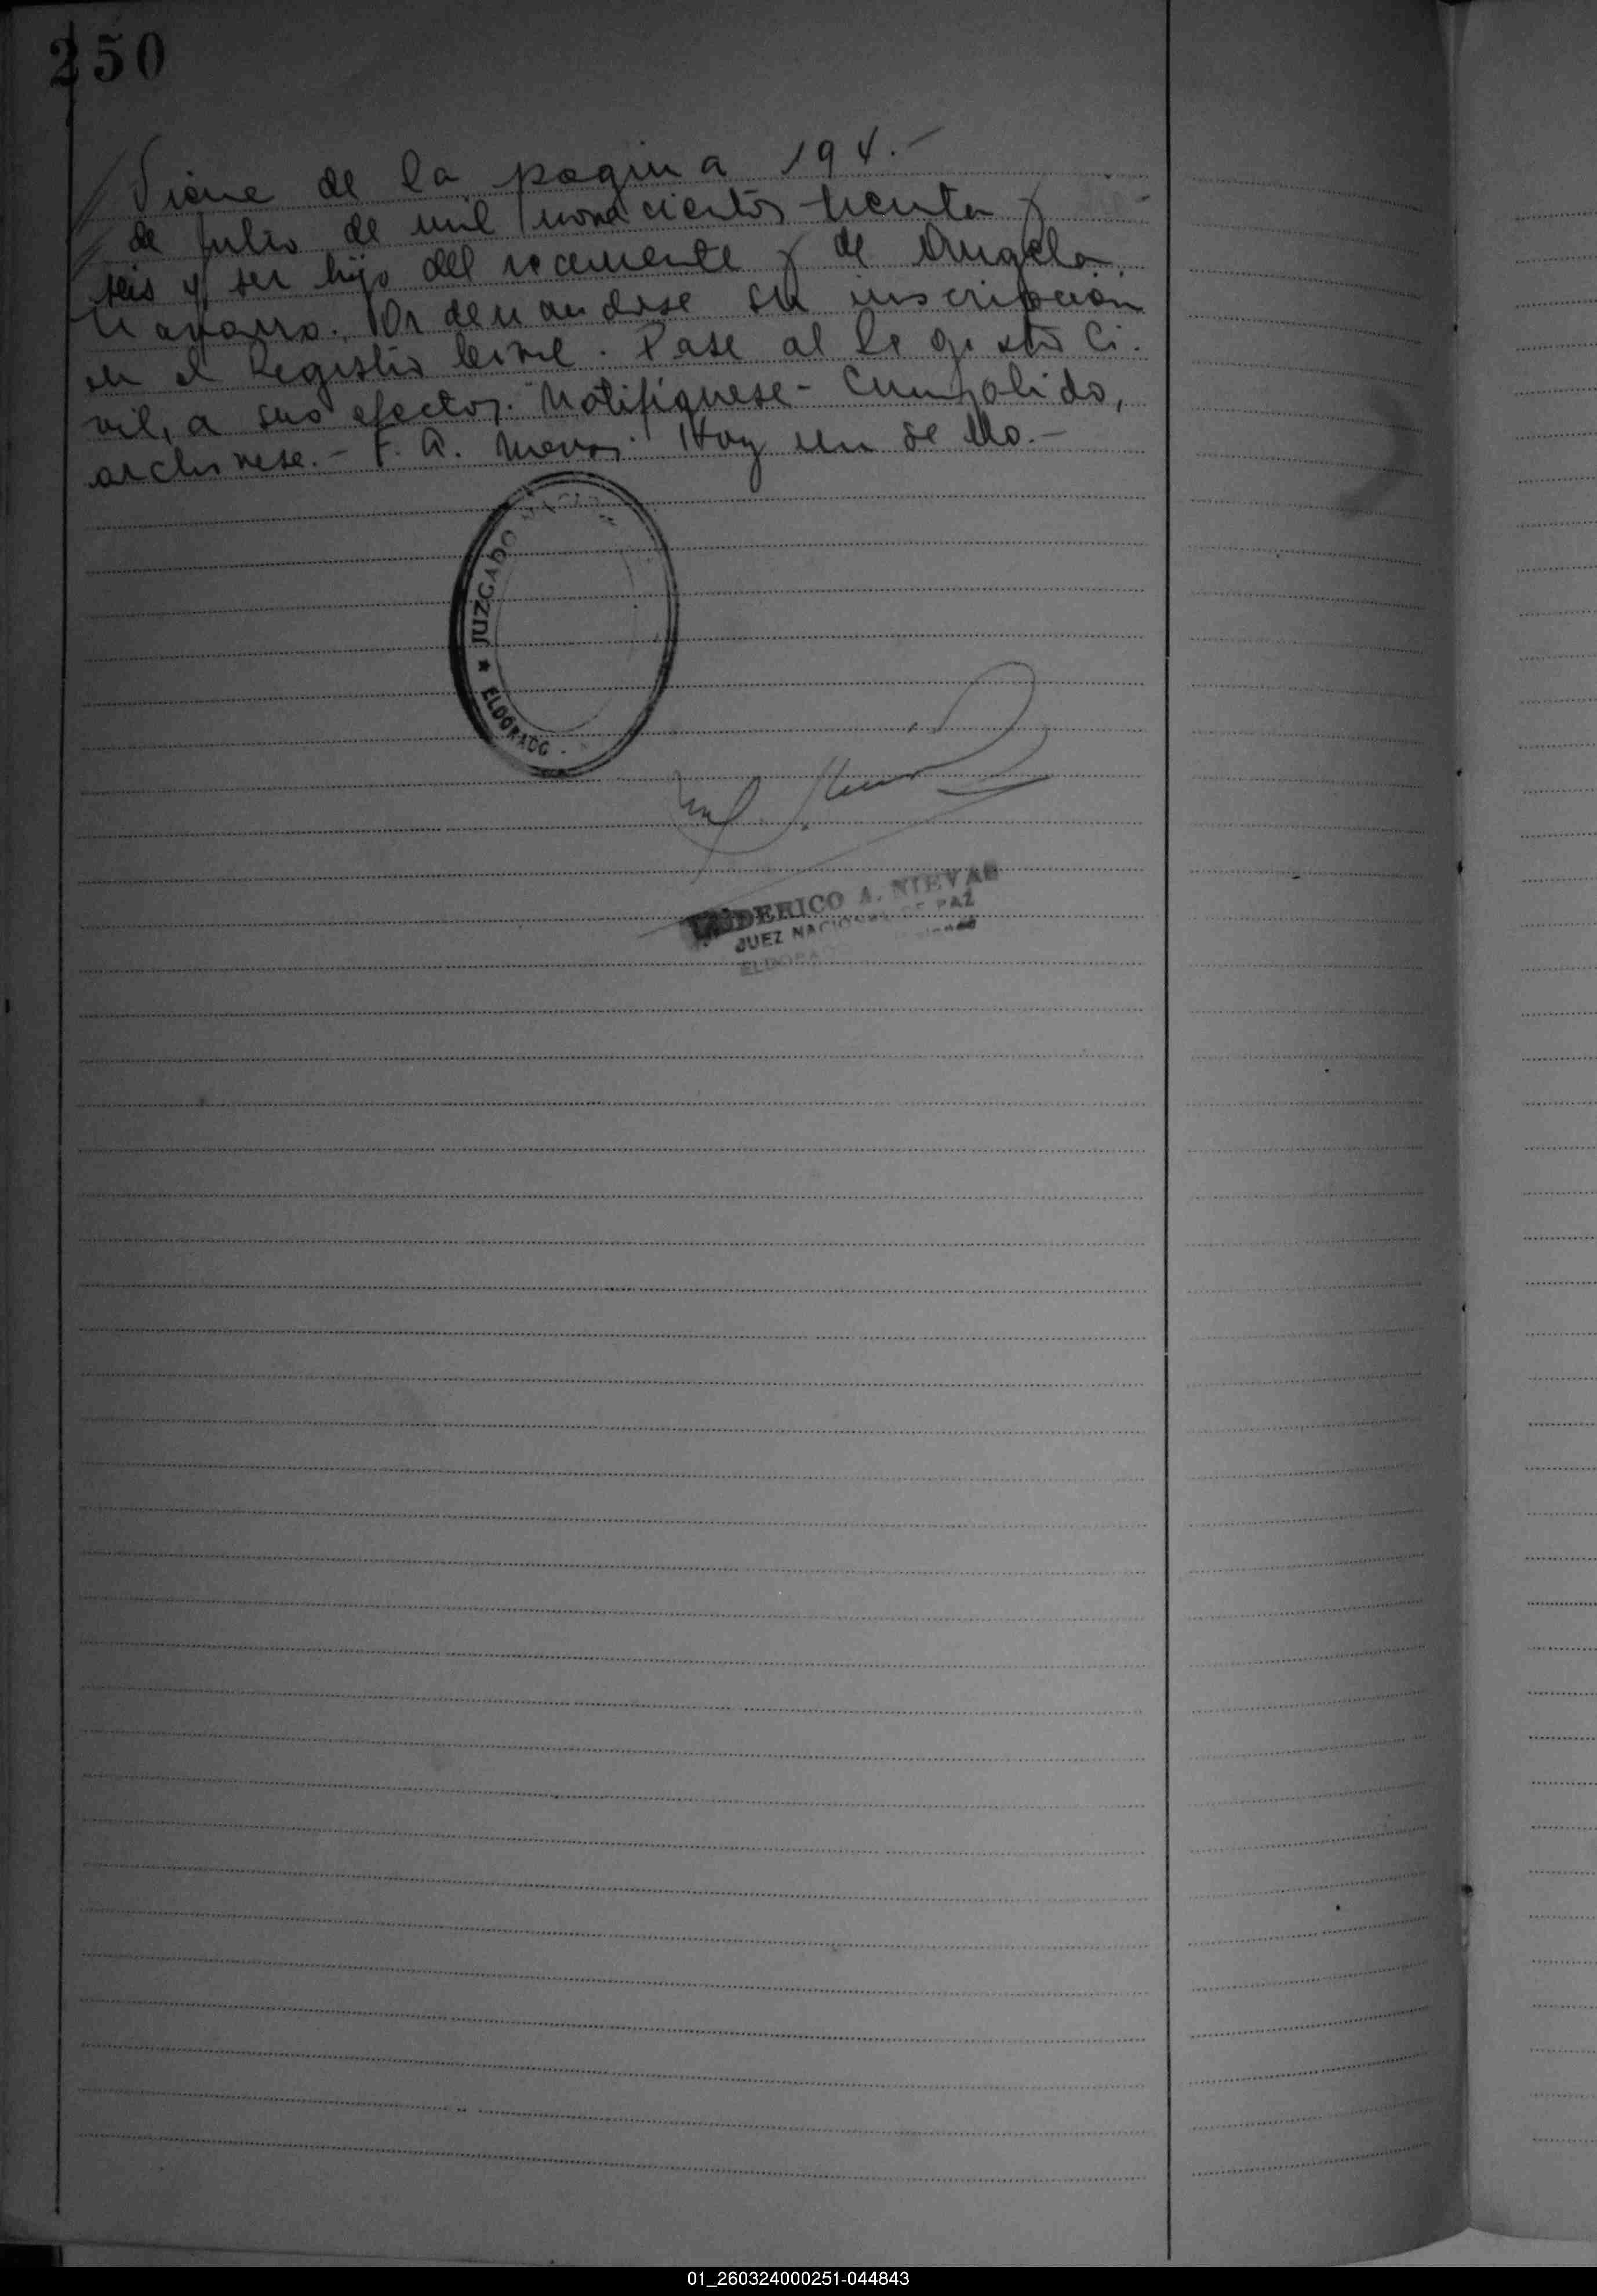 250
Viene de la pagina 194.-
de julio de mil novecientos treinta y
seis y ser hijo del recurrente y de Angela
Navarro. Ordenandose su inscripcion
en el Registro Civil. Pase al Registro Ci-
vil, a sus efectos. Notifiquese - Cumplido,
archivese.- F. A. Nievas. Hay un sello.-
JUZGADO
ELDORADO
FEDERICO A. NIEVAS
JUEZ NACIONAL DE PAZ
ELDORADO
01_260324000251-044843